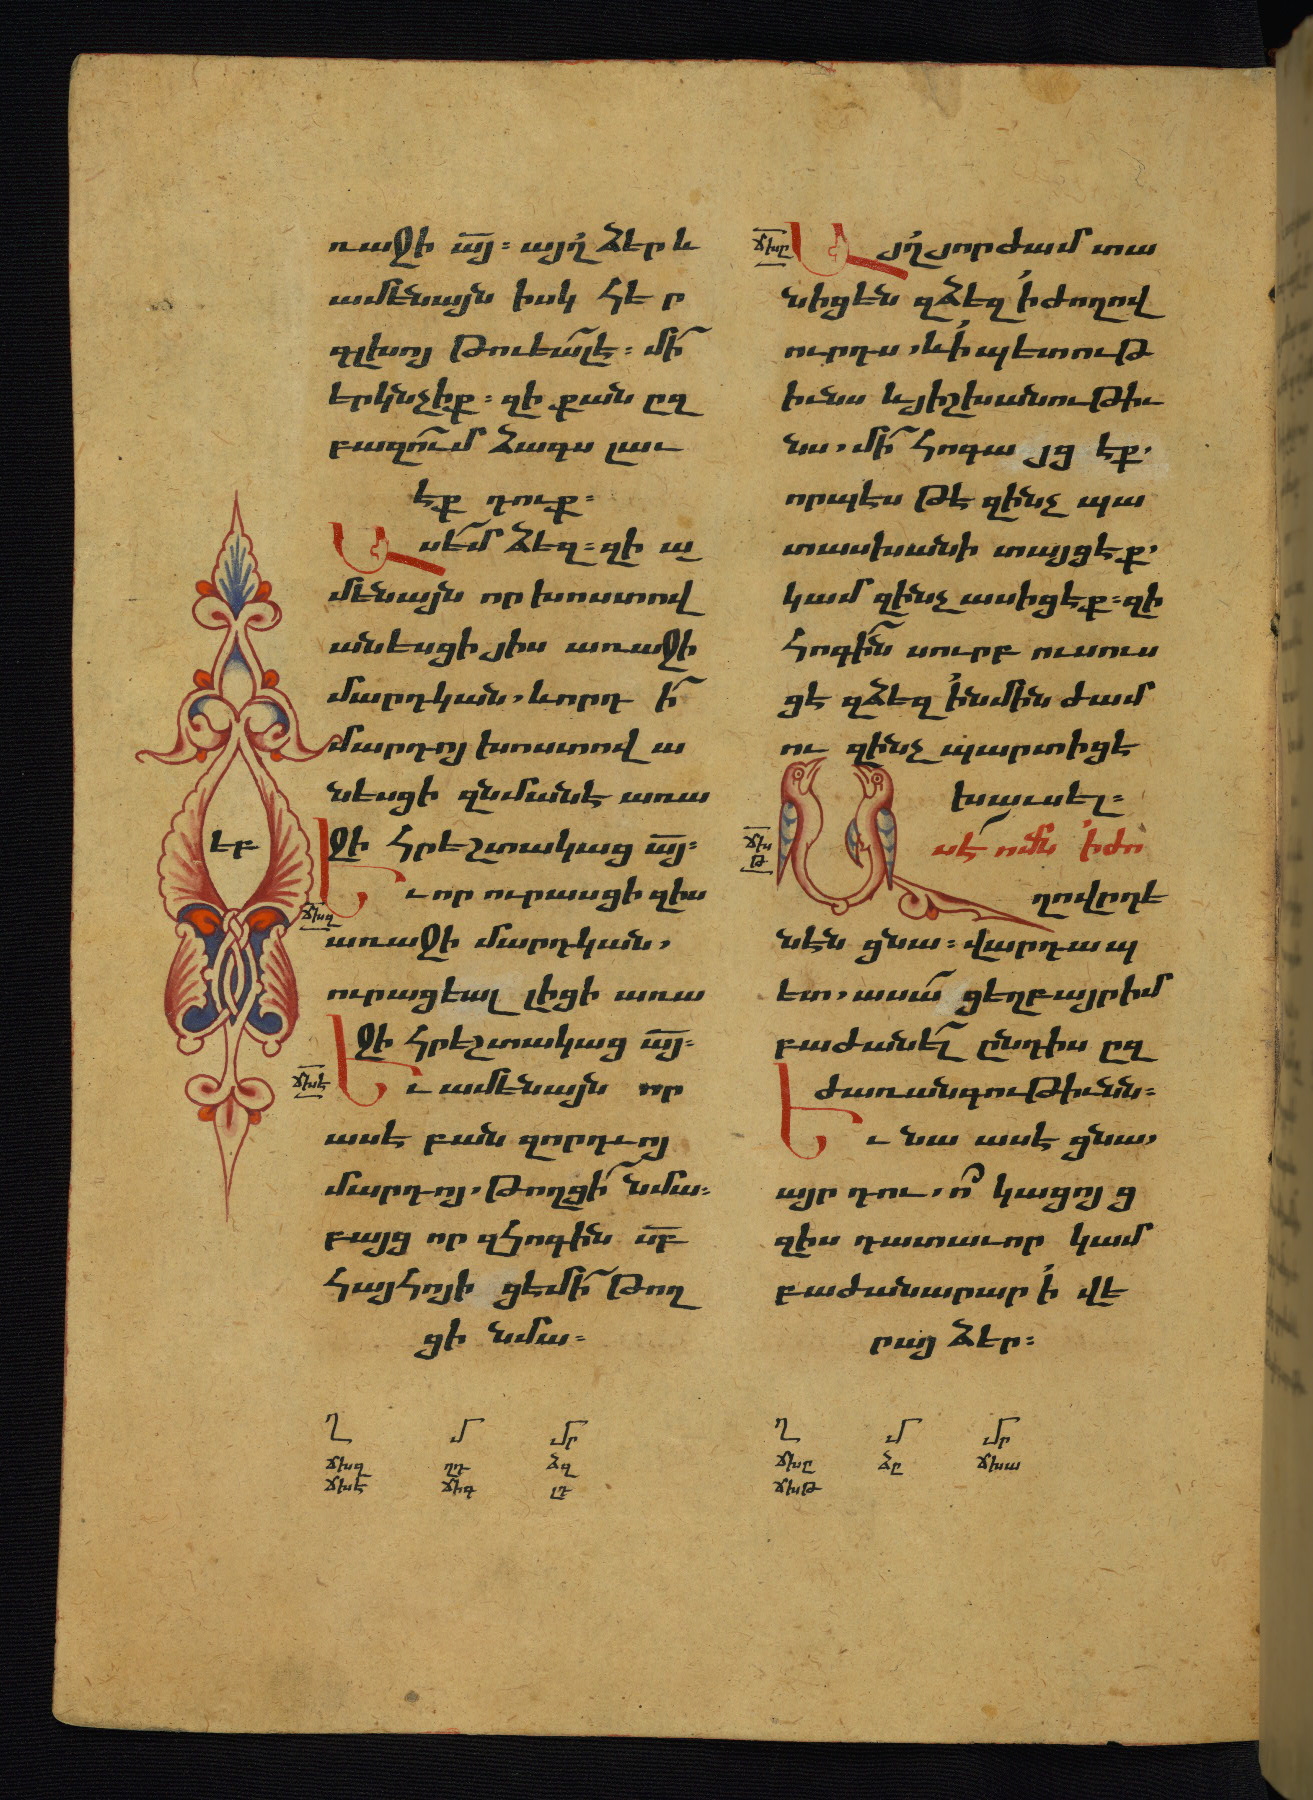 ռաջի ա՟յ։ այղ ձեր և
ամենայն իսկ հե ր
գլխոյ թուեալ է։ մի՛
երկնչիք։ զի քան ըզ
բազում ձագս լաւ
էք դուք։
Ասեմ ձեզ։ զի ա
մենայն որ խոստով
անեսցի յիս առաջի
մարդկան, և որդ ի՛
մարդոյ խոստով ա
նեսցի զնմանէ առա
ջի հրեշտակաց ա՟յ։
Եւ որ ուրասցի զիս
առաջի մարդկան,
ուրացեալ լիցի առա
ջի հրեշտակաց ա՟յ։
Եւ ամենայն որ
ասէ բան զորդւոյ
մարդոյ, թողցի՛ նմա։
բայց որ զհոգին ս՟բ
հայհոյիցե մի՛ թող
ցի նմա։
ճխզ
ճխէ
Այղ յորժամ տա
նիցեն զձեզ ի ժողով
ուրդս, և ի պետութ
իւնս և յիշխանութիւ
նս, մի՛ հոգա յց էք,
որպէս թէ զինչ պա
տասխանի տայցեք,
կամ զինչ ասիցեք։ զի
հոգին սուրբ ուսուս
ցե զձեզ ի նմին ժամ
ու զինչ պարտիցէ
խաւսել։
Ասէ ոմն ի ժո
ղովըրդէ
նէն ցնա։ վարդապ
ետ, ասա՛ ցեղբայր իմ
բաժանել ընդ իս ըզ
ժառանգութիւնն։
Եւ նա ասէ ցնա,
այր դու, ո՞ կացոյ ց
զիս դատաւոր կամ
բաժանարար ի վե
րայ ձեր։
ճխը
ճխ
թ
ղ մ մր
ճխզ ղդ ձզ
ճխէ
ղ մ մր
ճխը ձը ճխա
ճխթ